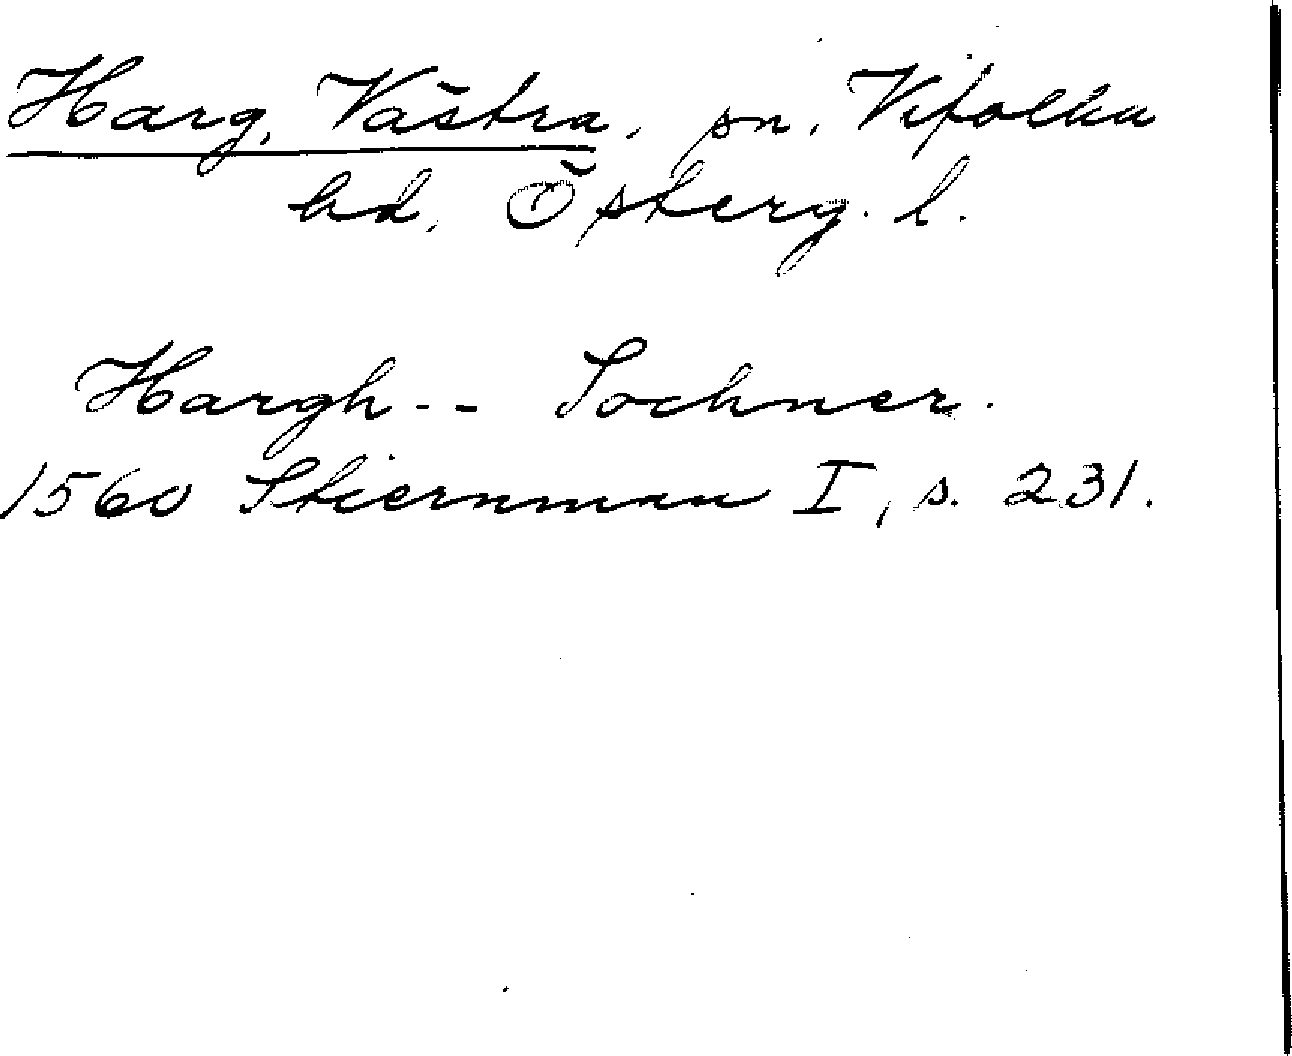 Harg, Västra, sn, Vifolka
hd, Österg. l.
Hargh-- Sochner.
1560 Stiernman I, s. 231.